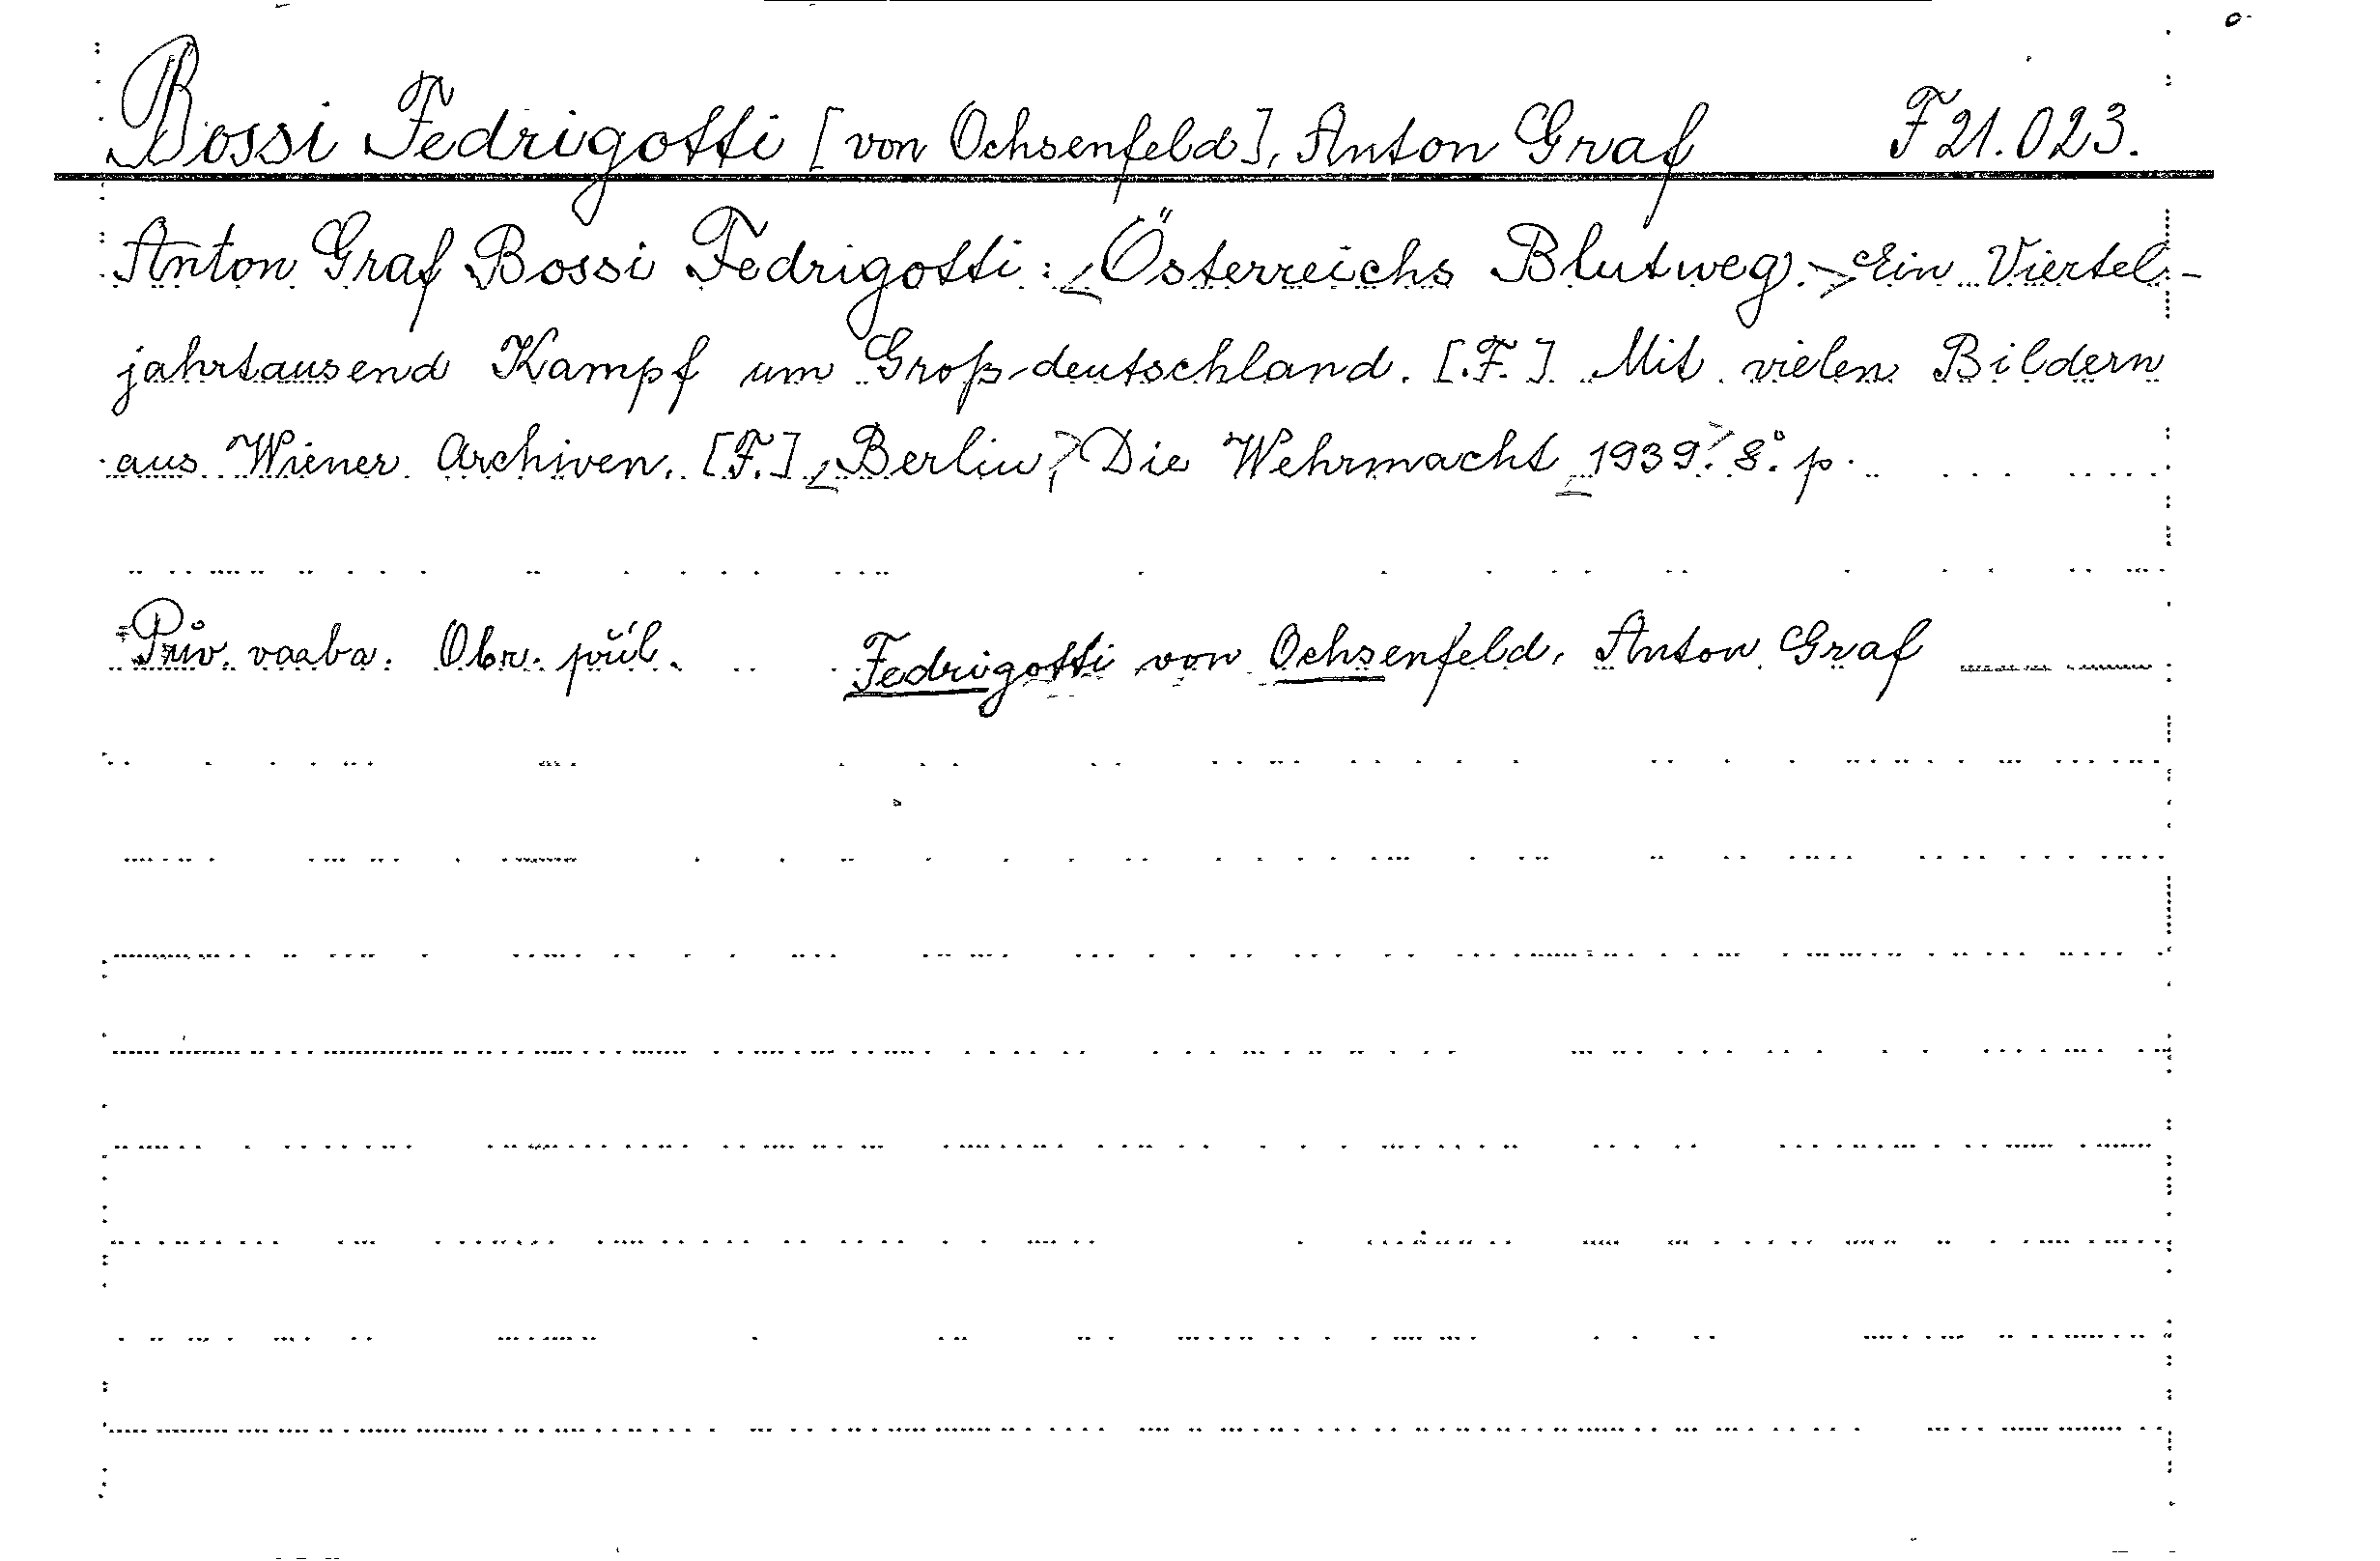 Bossi Fedrigotti [von Ochsenfeld], Anton Graf F 21.023.
Anton Graf Bossi Fedrigotti: Österreichs Blutweg. Ein Viertel-
jahrtausend Kampf um Groß-deutschland. [F.] Mit vielen Bildern
aus Wiener Archiven. [F.] Berlin, Die Wehrmacht 1939. 8°. p.
Pův. vazba. Obr. příl. Fedrigotti von Ochsenfeld, Anton Graf